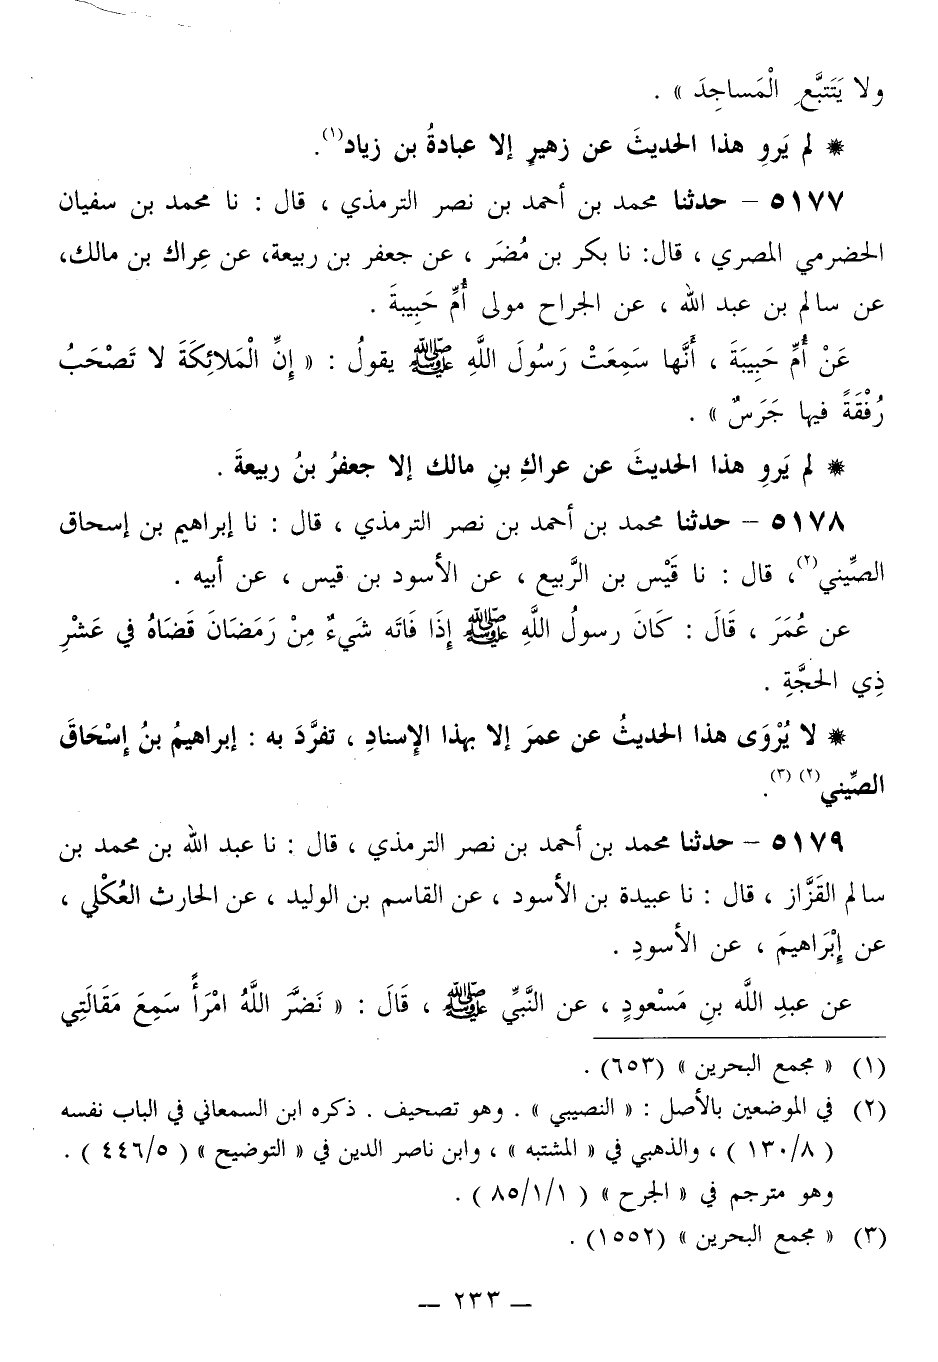 ولا يَتَتبَّعِ الْمَساجِدَ » .
* لم يَروِ هذا الحديثَ عن زهيرٍ إلا عبادةُ بن زياد(١).
٥١٧٧ – حدثنا محمد بن أحمد بن نصر الترمذي ، قال : نا محمد بن سفيان
الحضرمي المصري ، قال: نا بكر بن مُضَر ، عن جعفر بن ربيعة، عن عِراك بن مالك،
عن سالم بن عبد الله ، عن الجراح مولى أُمِّ حَبِيبةَ .
عَنْ أُمِّ حَبِيبَةَ ، أَنَّها سَمِعَتْ رَسُولَ اللَّهِ ﷺ يقولُ : « إِنَّ الْمَلائِكَةَ لا تَصْحَبُ
رُفْقَةً فيها جَرَسٌ » .
* لم يَروِ هذا الحديثَ عن عراكِ بنِ مالك إلا جعفرُ بنُ ربيعةَ .
٥١٧٨ – حدثنا محمد بن أحمد بن نصر الترمذي ، قال : نا إبراهيم بن إسحاق
الصِّيني(٢)، قال : نا قَيْس بن الرَّبيع ، عن الأسود بن قيس ، عن أبيه .
عن عُمَرَ ، قَالَ : كَانَ رسولُ اللَّهِ ﷺ إِذَا فَاتَه شَيءٌ مِنْ رَمَضَانَ قَضَاهُ في عَشْرِ
ذِي الحجَّةِ .
* لا يُرْوَى هذا الحديثُ عن عمرَ إلا بهذا الإسنادِ ، تفرَّدَ به : إبراهيمُ بنُ إِسْحَاقَ
الصِّيني(٢) (٣).
٥١٧٩ – حدثنا محمد بن أحمد بن نصر الترمذي ، قال : نا عبد الله بن محمد بن
سالم القَزَّاز ، قال : نا عبيدة بن الأسود ، عن القاسم بن الوليد ، عن الحارث العُكْلي ،
عن إِبْرَاهيمَ ، عن الأسودِ .
عن عبدِ اللَّه بنِ مَسْعودٍ ، عن النَّبيِّ ﷺ ، قَالَ : « نَضَّرَ اللَّهُ امْرَأً سَمِعَ مَقَالَتِي
(١) « مجمع البحرين » (٦٥٣) .
(٢) في الموضعين بالأصل : « النصيبي » . وهو تصحيف . ذكره ابن السمعاني في الباب نفسه
( ١٣٠/٨ ) ، والذهبي في « المشتبه » ، وابن ناصر الدين في « التوضيح » ( ٤٤٦/٥ ) .
وهو مترجم في « الجرح » ( ٨٥/١/١ ) .
(٣) « مجمع البحرين » (١٥٥٢) .
— ٢٣٣ —